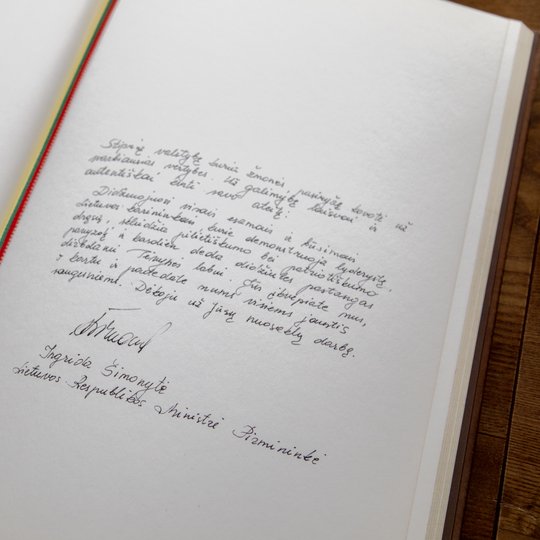 Stiprią valstybę kuria žmonės, pasiryžę kovoti už
svarbiausias vertybes. Už galimybę laisvai ir
autentiškai kurti savo ateitį.
Didžiuojuosi visais esamais ir būsimais
Lietuvos karininkais, kurie demonstruoja lyderystę,
drąsą, skleidžia pilietiškumo bei patriotiškumo
pavyzdį ir kasdien deda didžiules pastangas
didėdami Tėvynės labui. Jūs įkvepiate mus,
ir kartu padedate mums visiems jaustis
saugesniems. Dėkoju už jūsų nuoseklų darbą.
Ingrida Šimonytė
Lietuvos Respublikos Ministrė Pirmininkė